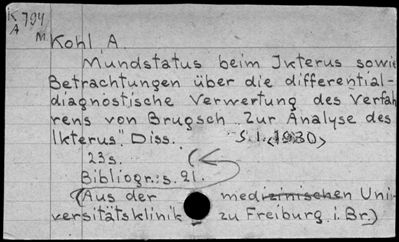 K 794
A M.
Kohl, A.
Mundstatus beim Ikterus sowie
Betrachtungen über die differential-
diagnostische Verwertung des Verfah
rens von Brugsch „Zur Analyse des
Ikterus". Diss. S.l. <1930>
23s.
Bibliogr.: s. 21.
(Aus der medizinischen Uni-
versitätsklinik zu Freiburg i. Br.)